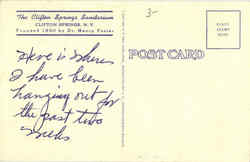 The Clifton Springs Sanitarium
CLIFTON SPRINGS, N. Y.
Founded 1850 by Dr. Henry Foster
3-
POST CARD
Here is where
I have been
hanging out for
the past two
weeks